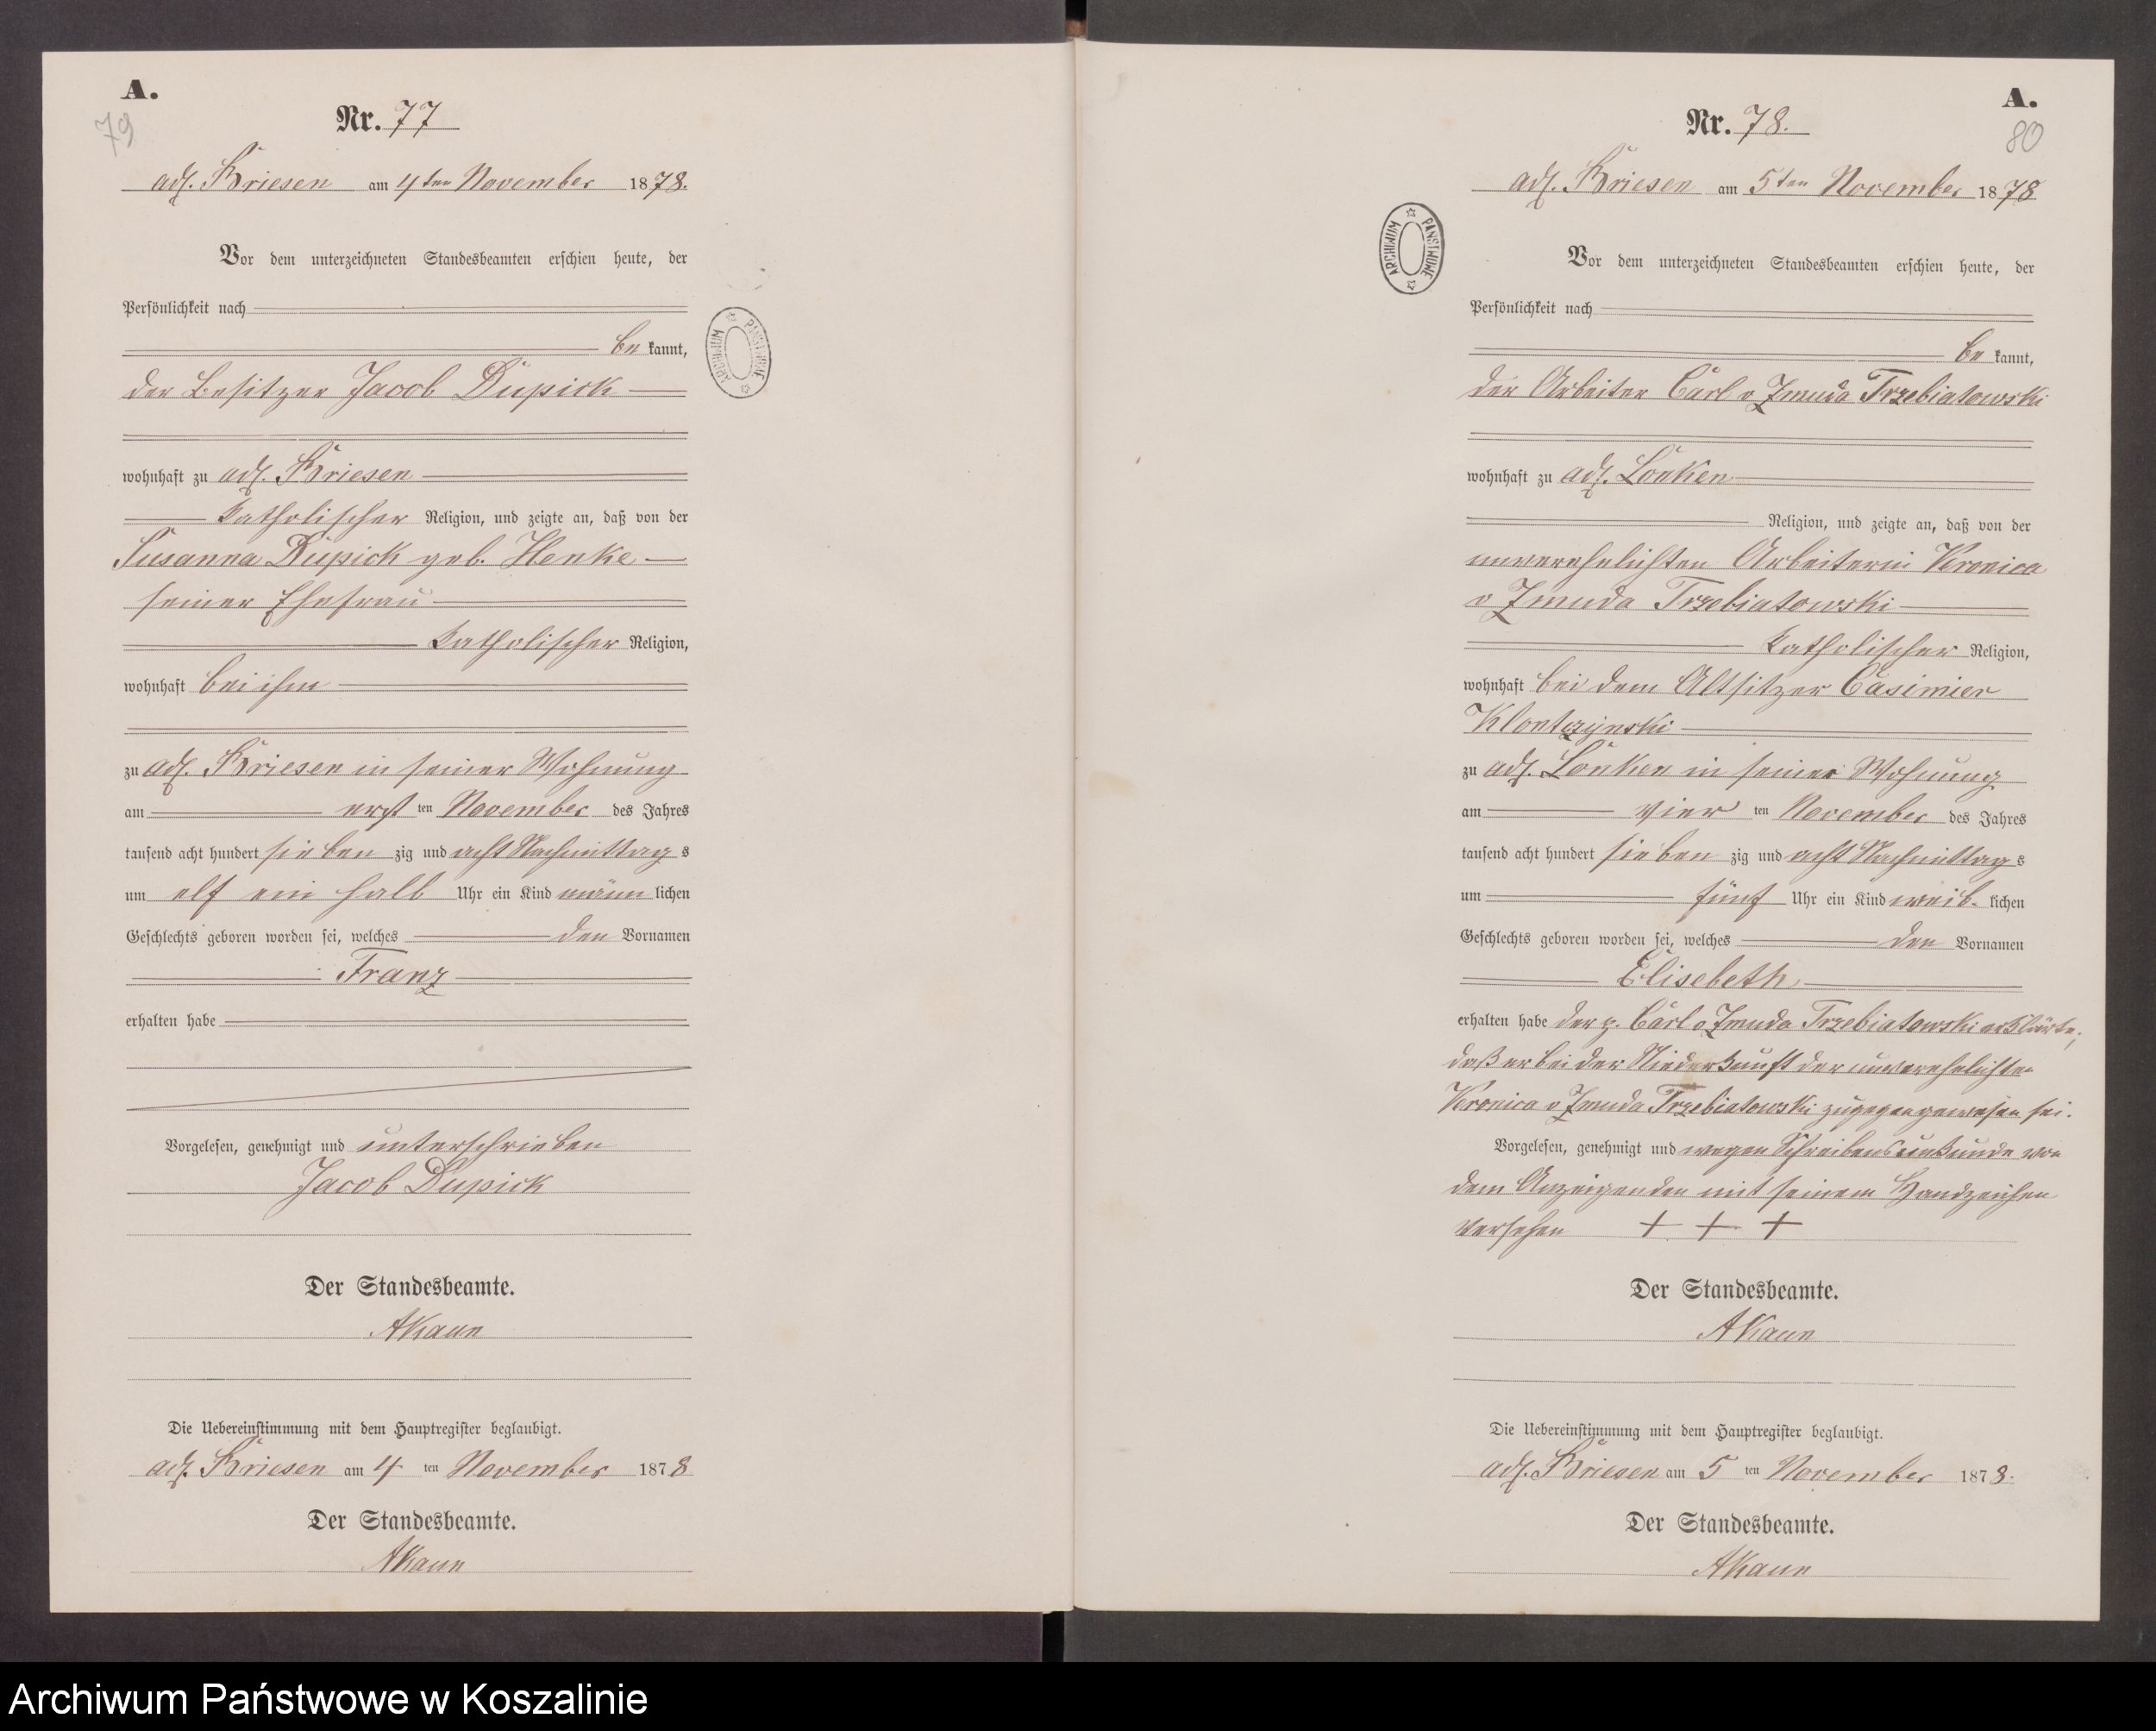 A.
79
Nr. 77
adl. Briesen am 4ten November 1878.
Vor dem unterzeichneten Standesbeamten erschien heute, der
Persönlichkeit nach
be kannt,
der Besitzer Jacob Dupick
wohnhaft zu adl. Briesen
katholischer Religion, und zeigte an, daß von der
Susanna Dupick geb. Henke
seiner Ehefrau
katholischer Religion,
wohnhaft bei ihm
zu adl. Briesen in seiner Wohnung
am erst ten November des Jahres
tausend acht hundert sieben zig und acht Nachmittag s
um elf ein halb Uhr ein Kind männ lichen
Geschlechts geboren worden sei, welches den Vornamen
Franz
erhalten habe
Vorgelesen, genehmigt und unterschrieben
Jacob Dupick
Der Standesbeamte.
AKaun
Die Uebereinstimmung mit dem Hauptregister beglaubigt.
adl. Briesen am 4 ten November 1878
Der Standesbeamte.
AKaun
ARCHIWUM PAŃSTWOWE
A.
80
Nr. 78.
adl. Briesen am 5ten November 1878
ARCHIWUM PAŃSTWOWE
Vor dem unterzeichneten Standesbeamten erschien heute, der
Persönlichkeit nach
be kannt,
der Arbeiter Carl v Zmuda Trzebiatowski
wohnhaft zu adl. Lonken
Religion, und zeigte an, daß von der
unverehelichten Arbeiterin Veronica
v Zmuda Trzebiatowski
katholischer Religion,
wohnhaft bei dem Altsitzer Casimier
Klontczynski
zu adl. Lonken in seiner Wohnung
am vier ten November des Jahres
tausend acht hundert sieben zig und acht Nachmittag s
um fünf Uhr ein Kind weib- lichen
Geschlechts geboren worden sei, welches den Vornamen
Elisebeth
erhalten habe der p. Carl v Zmuda Trzebiatowski erklärte;
daß er bei der Niederkunft der unverehelichten
Veronica v Zmuda Trzebiatowski zugegengewesen sei.
Vorgelesen, genehmigt und wegen Schreibensunkunde von
dem Anzeigenden mit seinem Handzeichen
versehen + + +
Der Standesbeamte.
AKaun
Die Uebereinstimmung mit dem Hauptregister beglaubigt.
adl. Briesen am 5 ten November 1878.
Der Standesbeamte.
AKaun
Archiwum Państwowe w Koszalinie